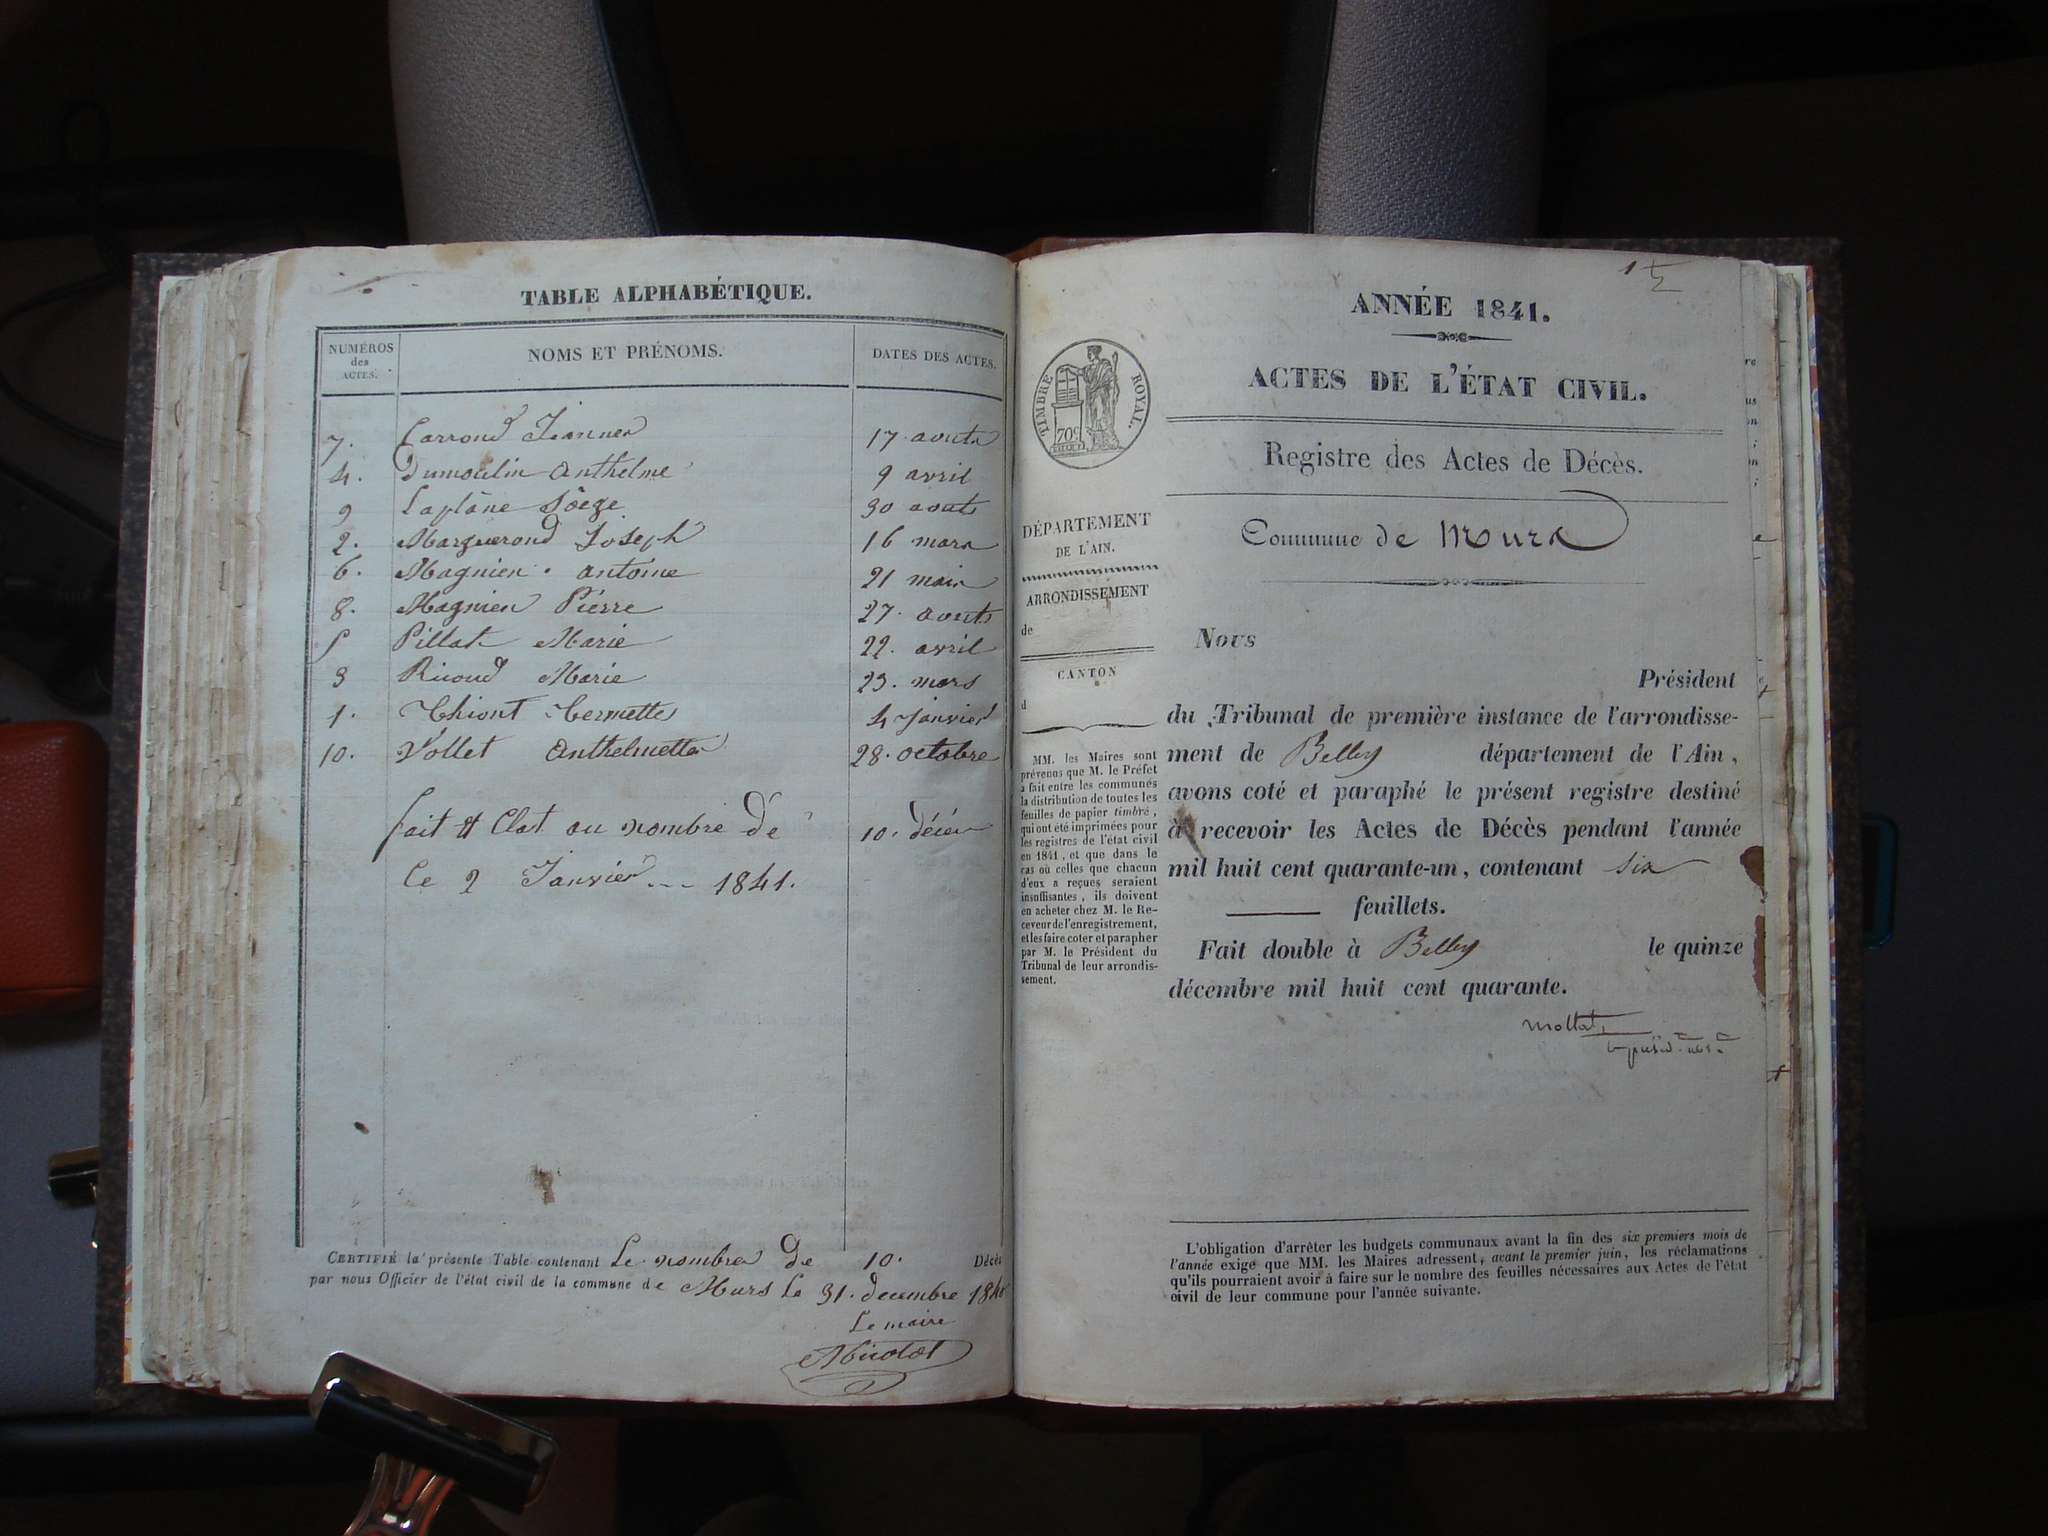 TABLE ALPHABÉTIQUE.
NUMÉROS des ACTES.
NOMS ET PRÉNOMS.
DATES DES ACTES.
7. Carrond Jeanne 17. aout
4. Dumoulin Anthelme 9 avril
9 30 aout
2. Marguerond Joseph 16 mars
6. Magnien Antoine 21 mai
8. Magnien Pierre 27. aout
5 Pillat Marie 22. avril
3 Marie 23. mars
1. Thiont 4 Janvier
10. Vollet Anthelmette 28. octobre
fait et Clot au nombre de 10. décés
le 2 Janvier 1841.
CERTIFIÉ la présente Table contenant Le nombre de 10. Décès
par nous Officier de l'état civil de la commune de Murs le 31. decembre 1840
Le maire
ANNÉE 1841.
ACTES DE L'ÉTAT CIVIL.
Registre des Actes de Décès.
Commune de Murs
TIMBRE ROYAL.
70c
DÉPARTEMENT
DE L'AIN.
ARRONDISSEMENT
de
CANTON
d
MM. les Maires sont
prévenus que M. le Préfet
a fait entre les communes
la distribution de toutes les
feuilles de papier timbré,
qui ont été imprimées pour
les registres de l'état civil
en 1841, et que dans le
cas où celles que chacun
d'eux a reçues seraient
insuffisantes, ils doivent
en acheter chez M. le Re-
ceveur de l'enregistrement,
et les faire coter et parapher
par M. le Président du
Tribunal de leur arrondis-
sement.
Nous
Président
du Tribunal de première instance de l'arrondisse-
ment de Belley département de l'Ain,
avons coté et paraphé le présent registre destiné
à recevoir les Actes de Décès pendant l'année
mil huit cent quarante-un, contenant six
feuillets.
Fait double à Belley le quinze
décembre mil huit cent quarante.
L'obligation d'arrêter les budgets communaux avant la fin des six premiers mois de
l'année exige que MM. les Maires adressent, avant le premier juin, les réclamations
qu'ils pourraient avoir à faire sur le nombre des feuilles nécessaires aux Actes de l'état
civil de leur commune pour l'année suivante.